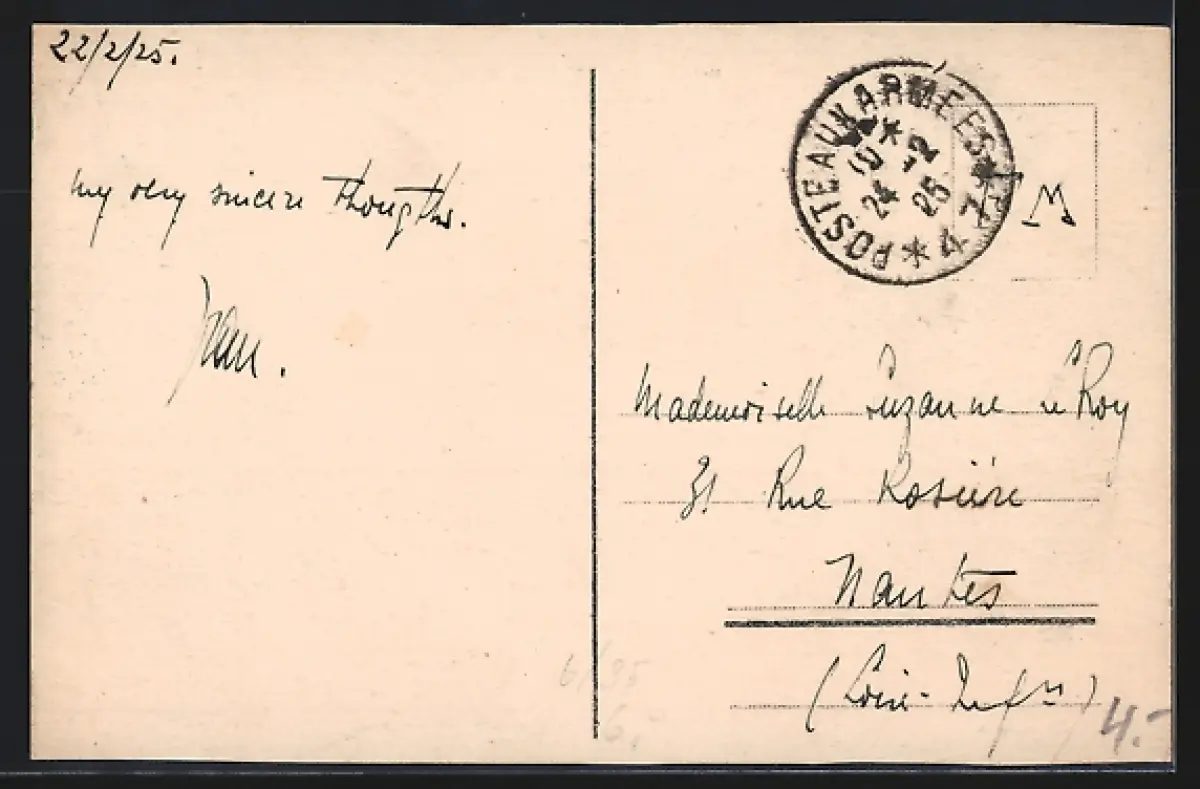 22/2/25.
my very sincere thougths.
Jean.
POSTE AUX ARMÉES * 47 *
* 10
24 -2
25
FM
Mademoiselle Suzanne Le Roy
31 Rue Rosière
Nantes
(Loire-Infre)
6/35
6.
4.-